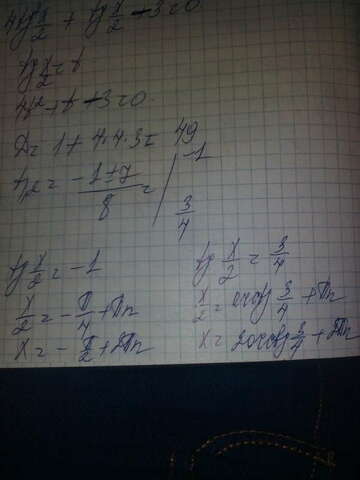 4tg² x/2 + tg x/2 - 3 = 0
tg x/2 = t
4t² + t - 3 = 0
D = 1 + 4·4·3 = 49
t₁,₂ = (-1 ± 7)/8 = -1
3/4
tg x/2 = -1
x/2 = -π/4 + πn
x = -π/2 + 2πn
tg x/2 = 3/4
x/2 = arctg 3/4 + πn
x = 2arctg 3/4 + 2πn